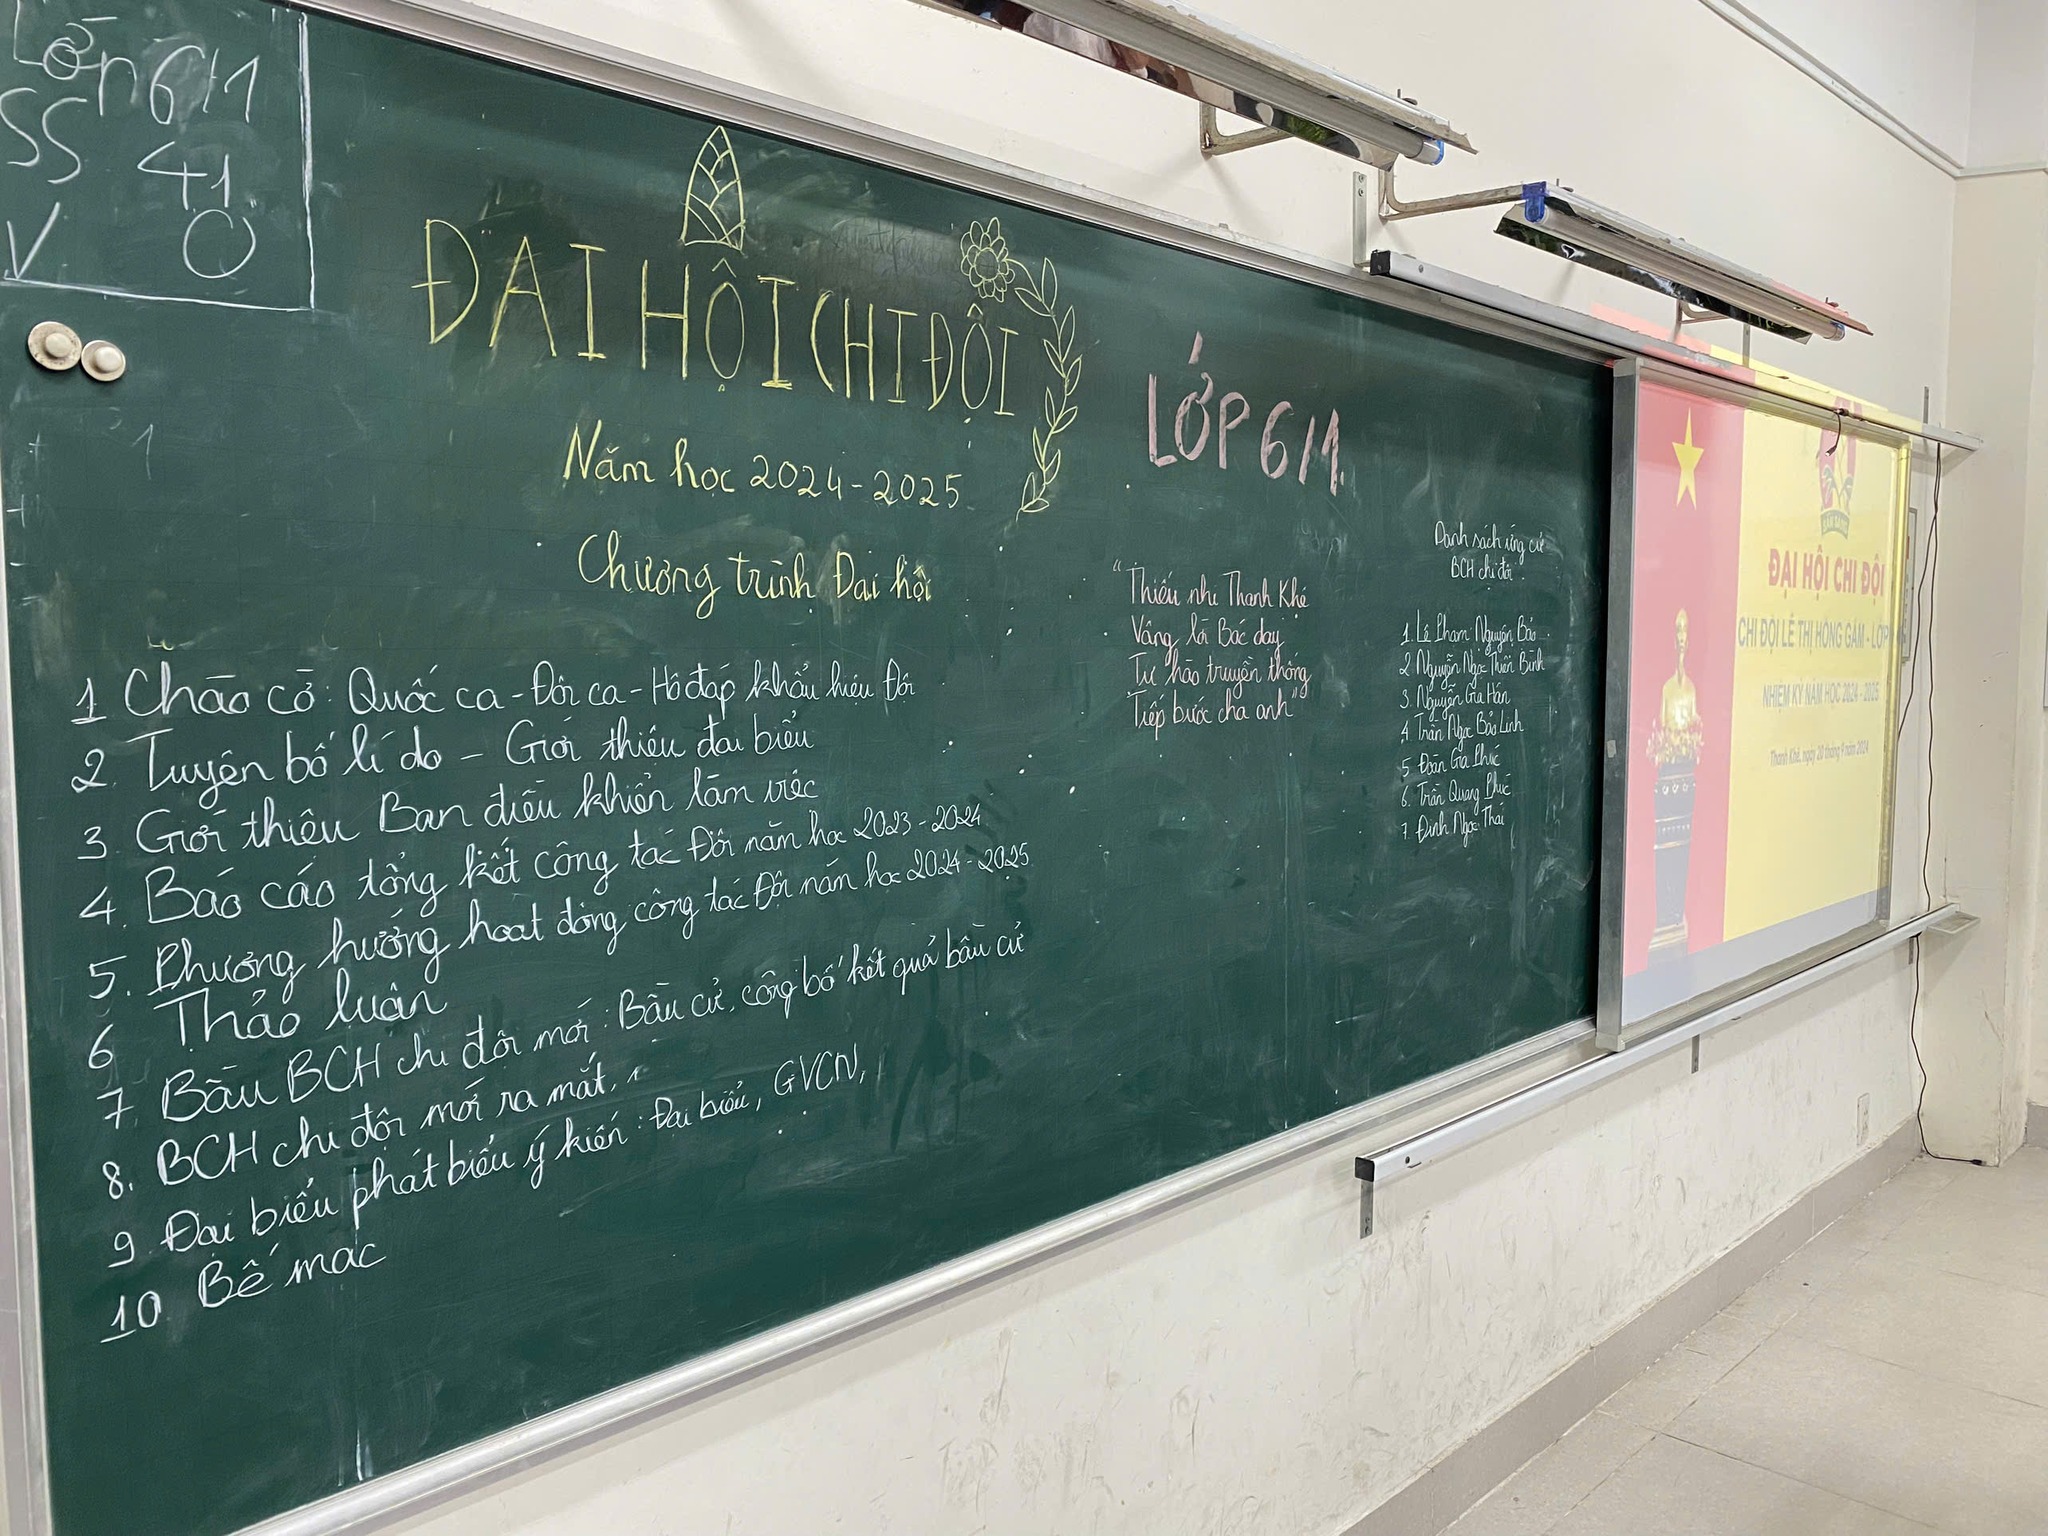 Lớp 6/1
SS 41
V 0
ĐẠI HỘI CHI ĐỘI
Năm học 2024-2025
Chương trình Đại hội
1 Chào cờ: Quốc ca - Đội ca - Hô đáp khẩu hiệu Đội
2. Tuyên bố lí do - Giới thiệu đại biểu
3. Giới thiệu Ban điều khiển làm việc
4. Báo cáo tổng kết công tác Đội năm học 2023-2024
5. Phương hướng hoạt động công tác Đội năm học 2024-2025
6 Thảo luận
7. Bầu BCH chi đội mới: Bầu cử, công bố kết quả bầu cử
8. BCH chi đội mới ra mắt.
9 Đại biểu phát biểu ý kiến: Đại biểu, GVCN,
10 Bế mạc
LỚP 6/1.
"Thiếu nhi Thanh Khê
Vâng lời Bác dạy
Tự hào truyền thống
Tiếp bước cha anh"
Danh sách ứng cử
BCH chi đội
1. Lê Phạm Nguyên Bảo
2 Nguyễn Ngọc Thiên Bình
3. Nguyễn Gia Hân
4 Trần Ngọc Bảo Linh
5 Đoàn Gia Phúc
6. Trần Quang Phúc
7. Đinh Ngọc Thái
SẴN SÀNG
ĐẠI HỘI CHI ĐỘI
CHI ĐỘI LÊ THỊ HỒNG GẤM - LỚP
NHIỆM KỲ NĂM HỌC 2024 - 2025
Thanh Khê, ngày 20 tháng 9 năm 2024